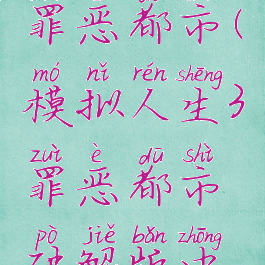 罪恶都市(
mó nǐ rén shēng
模拟人生3
zuì è dū shì
罪恶都市
pò jiě bǎn zhōng
破解版中